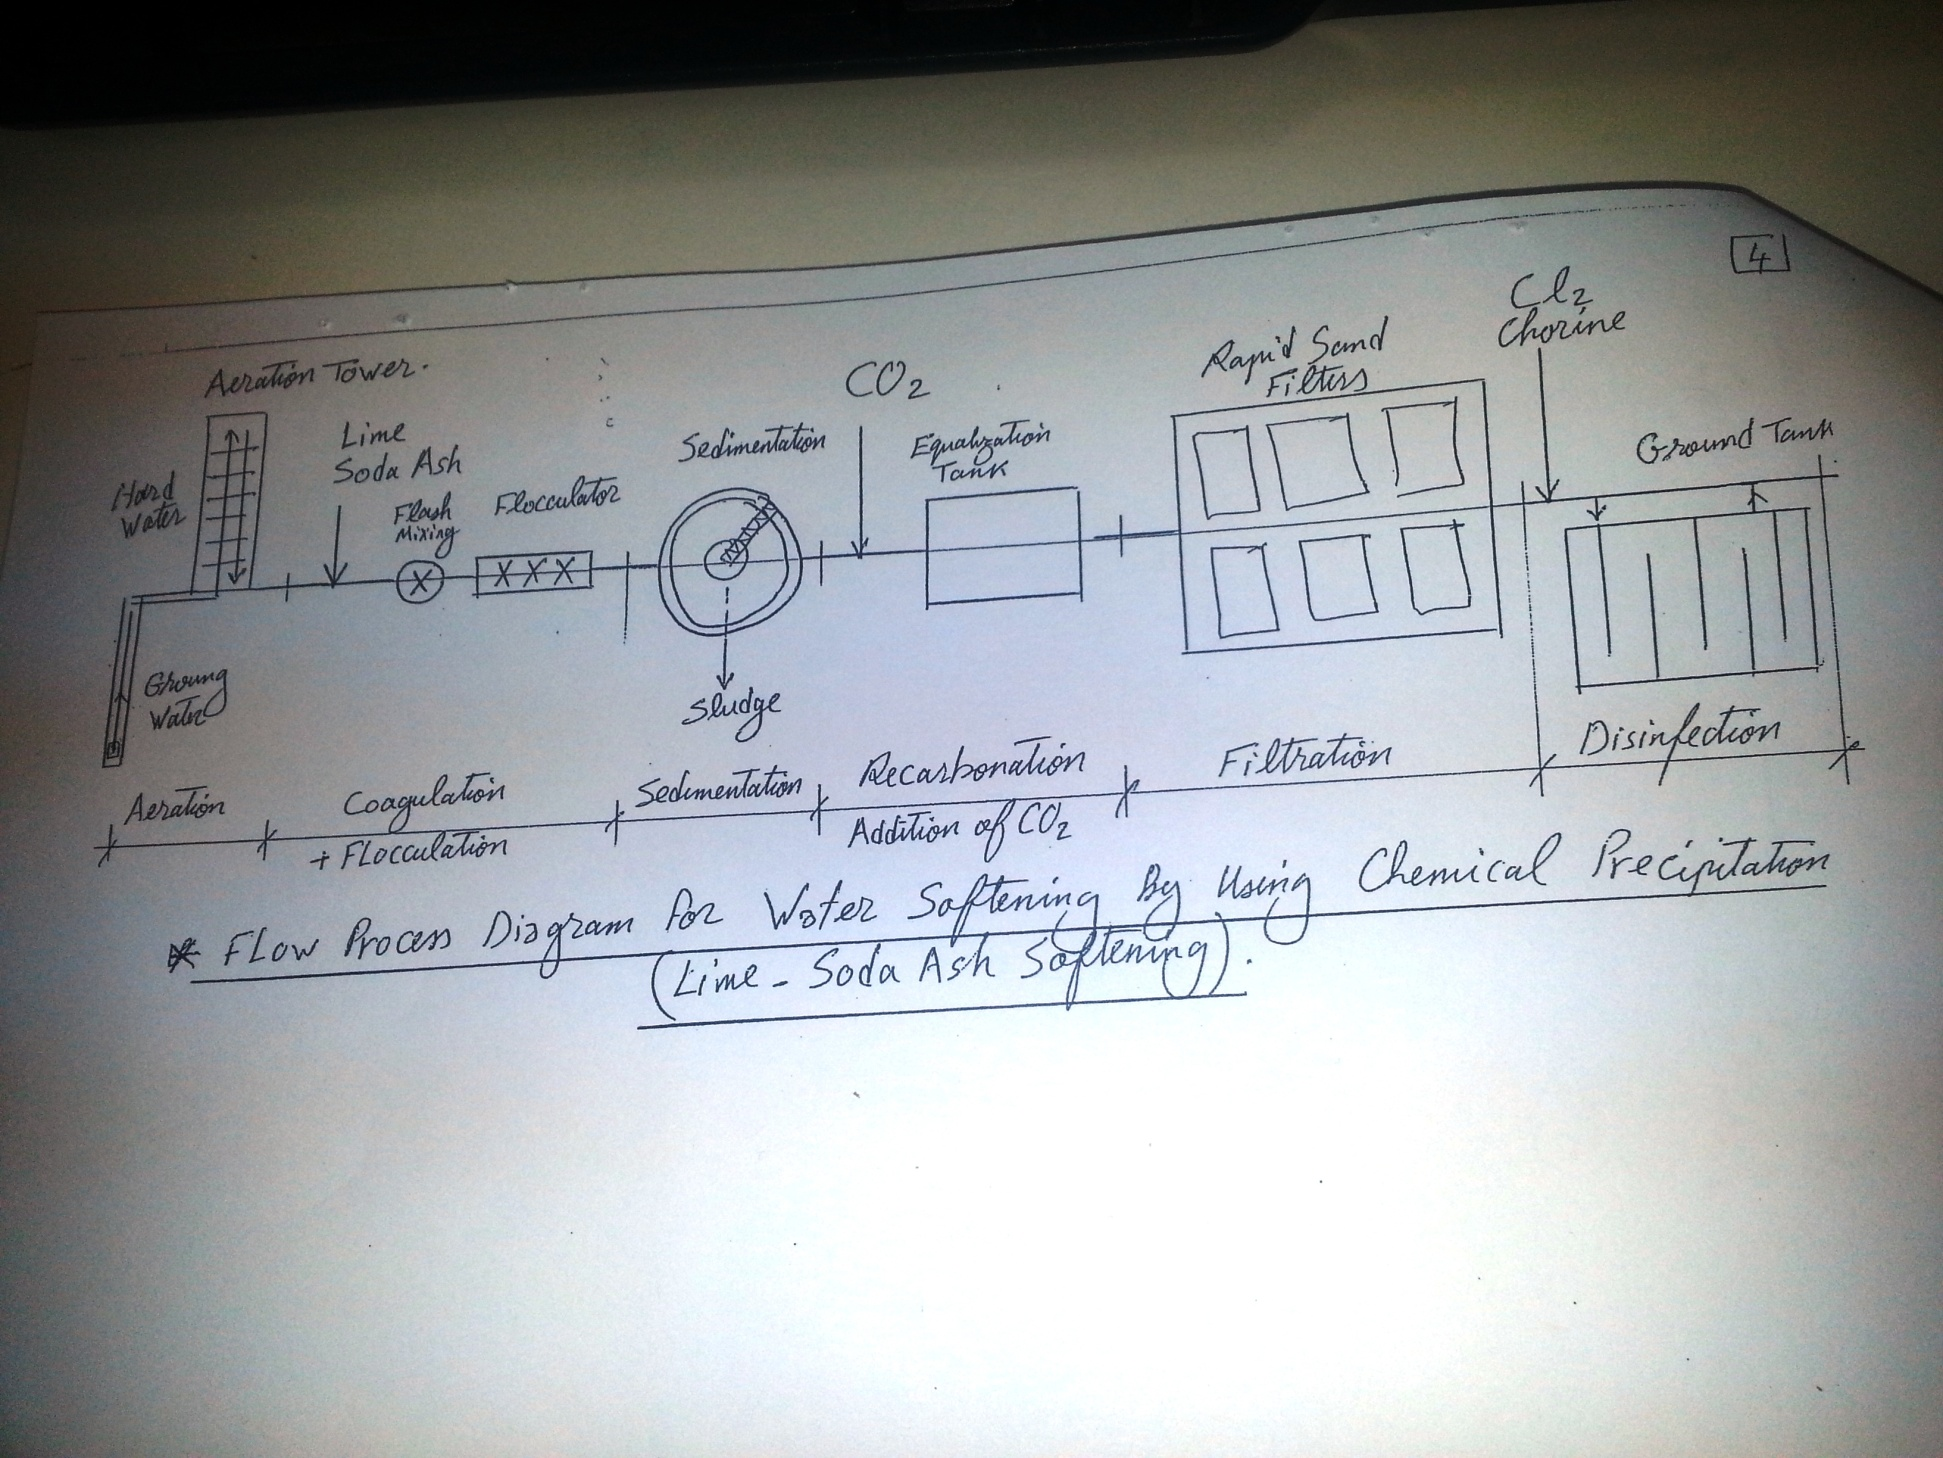 4
Aeration Tower.
Hard
Water
Lime
Soda Ash
Flash
Mixing
Flocculator
Sedimentation
CO2
Equalization
Tank
Rapid Sand
Filters
Cl2
Chorine
Ground Tank
X
X X X
Groung
Water
Sludge
Aeration
Coagulation
+ Flocculation
Sedimentation
Recarbonation
Addition of CO2
Filtration
Disinfection
* Flow Process Diagram for Water Softening By Using Chemical Precipitation
(Lime - Soda Ash Softening).